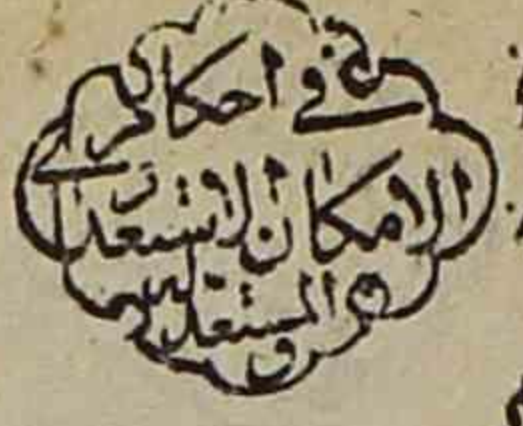 في احكام
الامكان الاستعدادي
و المستعد